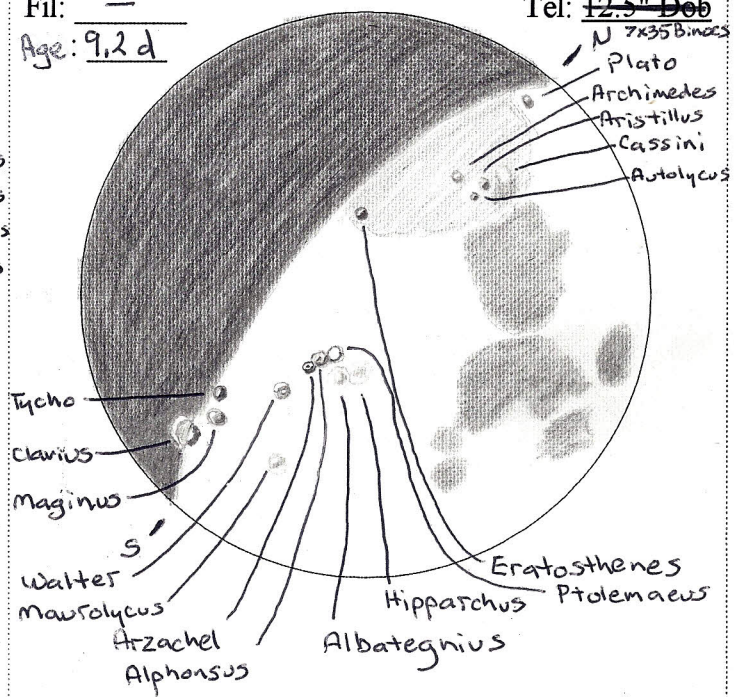 Fil: —
Tel: 12.5" Dob
Age: 9.2 d
N 7x35 Binocs
Plato
Archimedes
Aristillus
Cassini
Autolycus
Tycho
Clavius
Maginus
S
Walter
Maurolycus
Arzachel
Alphonsus
Albategnius
Hipparchus
Eratosthenes
Ptolemaeus